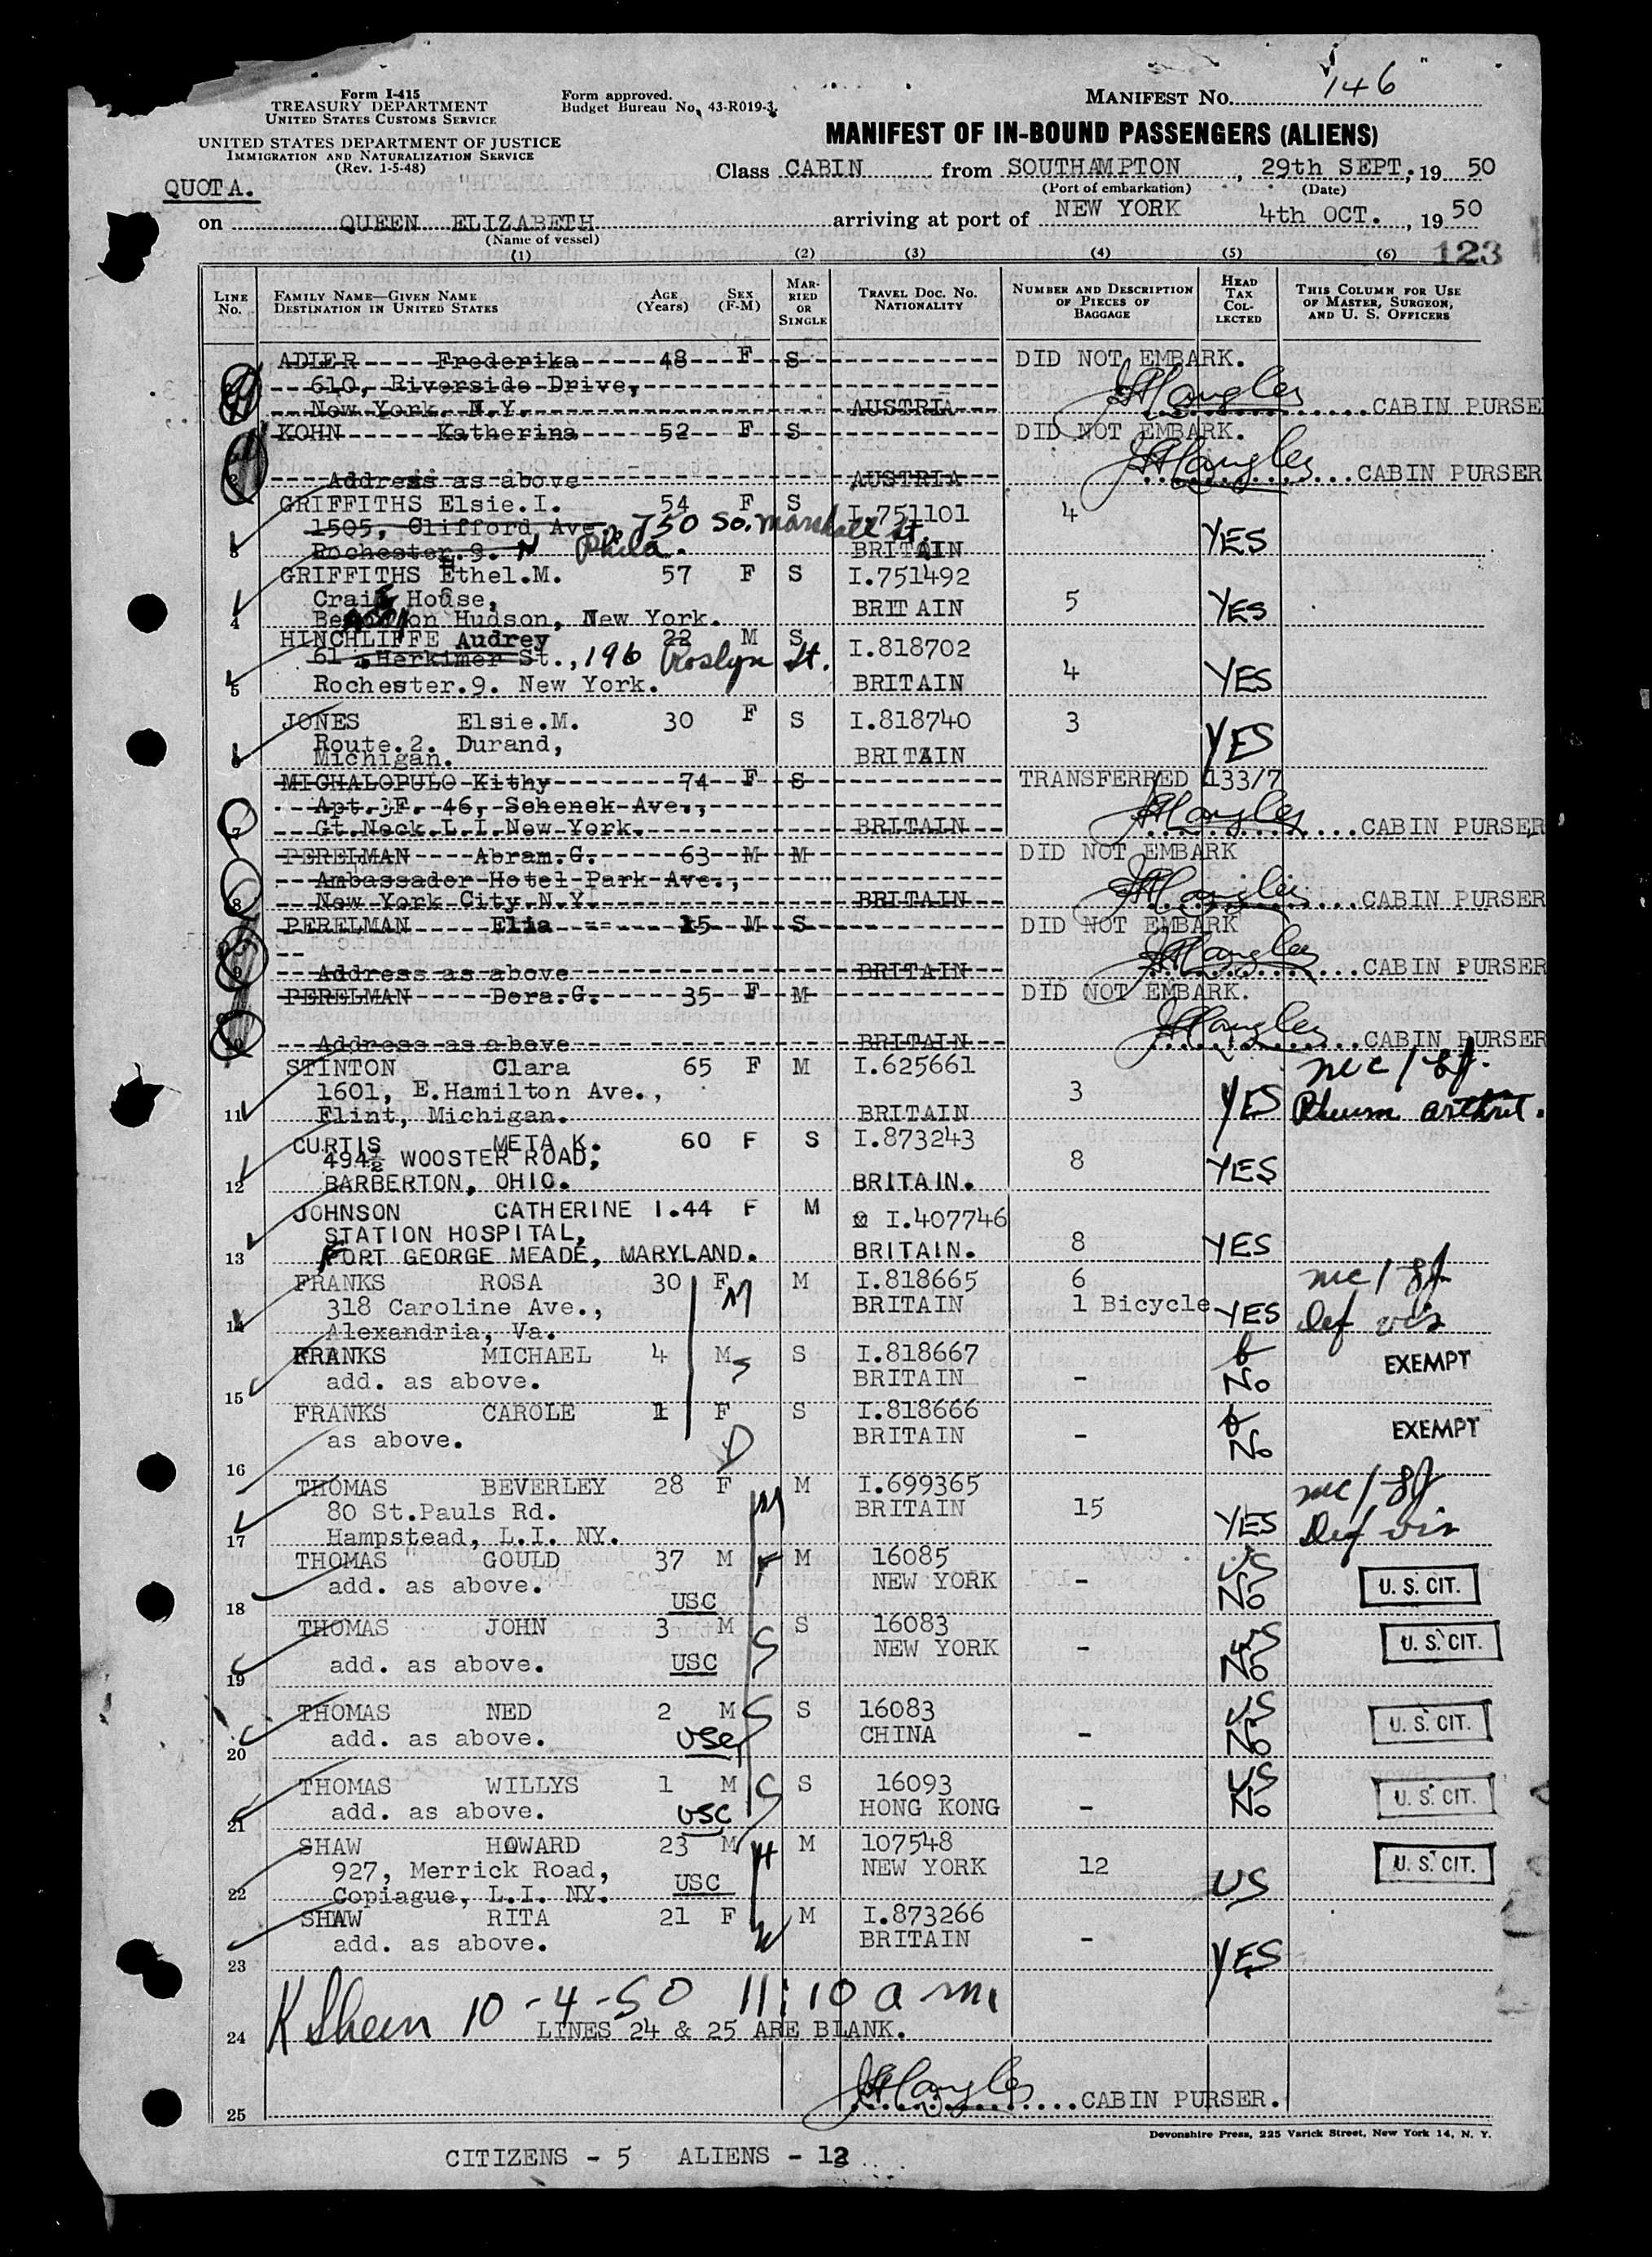 Form I-415
TREASURY DEPARTMENT
UNITED STATES CUSTOMS SERVICE
Form approved.
Budget Bureau No. 43-R019-3.
MANIFEST No. 146
UNITED STATES DEPARTMENT OF JUSTICE
IMMIGRATION AND NATURALIZATION SERVICE
(Rev. 1-5-48)
MANIFEST OF IN-BOUND PASSENGERS (ALIENS)
QUOTA.
Class CABIN from SOUTHAMPTON, 29th SEPT, 19 50
(Port of embarkation) (Date)
on QUEEN ELIZABETH arriving at port of NEW YORK 4th OCT., 19 50
(Name of vessel)
(1) (2) (3) (4) (5) (6) 123
LINE No. FAMILY NAME—GIVEN NAME DESTINATION IN UNITED STATES AGE (Years) SEX (F-M) MARRIED OR SINGLE TRAVEL DOC. NO. NATIONALITY NUMBER AND DESCRIPTION OF PIECES OF BAGGAGE HEAD TAX COLLECTED THIS COLUMN FOR USE OF MASTER, SURGEON, AND U. S. OFFICERS
ADLER Frederika 48 F S DID NOT EMBARK.
610, Riverside Drive,
New York. N.Y. AUSTRIA CABIN PURSER
KOHN Katherina 52 F S DID NOT EMBARK.
Address as above AUSTRIA CABIN PURSER
GRIFFITHS Elsie.I. 54 F S I.751101 4
1505, Clifford Ave. 750 So. Marshall St.
3 Rochester.9. N Phila. BRITAIN YES
GRIFFITHS Ethel.M. 57 F S I.751492
Craig House, BRITAIN 5 YES
4 Beacon on Hudson, New York.
HINCHLIFFE Audrey 22 M S I.818702
61 Herkimer St., 196 Roslyn St. 4
5 Rochester.9. New York. BRITAIN YES
JONES Elsie.M. 30 F S I.818740 3
Route.2. Durand,
6 Michigan. BRITAIN YES
MICHALOPULO Kithy 74 F S TRANSFERRED 133/7
Apt. 3F. 46, Schenek Ave.,
7 Gt.Neck.L.I.New York. BRITAIN CABIN PURSER
PERELMAN Abram.G. 63 M M DID NOT EMBARK
Ambassador Hotel Park Ave.,
8 New York City.N.Y. BRITAIN CABIN PURSER
PERELMAN Elia 15 M S DID NOT EMBARK
9 Address as above BRITAIN CABIN PURSER
PERELMAN Dora.G. 35 F M DID NOT EMBARK.
10 Address as above BRITAIN CABIN PURSER
STINTON Clara 65 F M I.625661
1601, E.Hamilton Ave., 3
11 Flint, Michigan. BRITAIN YES Rheum arthrit.
CURTIS META K. 60 F S I.873243
494½ WOOSTER ROAD, 8
12 BARBERTON, OHIO. BRITAIN. YES
JOHNSON CATHERINE 1.44 F M I.407746
STATION HOSPITAL,
13 FORT GEORGE MEADE, MARYLAND. BRITAIN. 8 YES
FRANKS ROSA 30 F M M I.818665 6
318 Caroline Ave., BRITAIN 1 Bicycle
14 Alexandria, Va. YES Def vis
FRANKS MICHAEL 4 M S S I.818667 EXEMPT
15 add. as above. BRITAIN - No
FRANKS CAROLE 1 F S I.818666 EXEMPT
as above. D BRITAIN - No
16
THOMAS BEVERLEY 28 F M M I.699365
80 St.Pauls Rd. BRITAIN 15
17 Hampstead, L.I. NY. YES Def vis
THOMAS GOULD 37 M F M 16085 US
add. as above. NEW YORK - No U. S. CIT.
18 USC
THOMAS JOHN 3 M S S 16083 US
19 add. as above. USC NEW YORK - No U. S. CIT.
THOMAS NED 2 M S S 16083 US
20 add. as above. USC CHINA - No U. S. CIT.
THOMAS WILLYS 1 M S S 16093 US
21 add. as above. USC HONG KONG - No U. S. CIT.
SHAW HOWARD 23 M H M 107548
927, Merrick Road, NEW YORK 12 U. S. CIT.
22 Copiague, L.I. NY. USC US
SHAW RITA 21 F W M I.873266
23 add. as above. BRITAIN - YES
10-4-50 11:10 am.
24 LINES 24 & 25 ARE BLANK.
25 CABIN PURSER.
Devonshire Press, 225 Varick Street, New York 14, N. Y.
CITIZENS - 5 ALIENS - 12